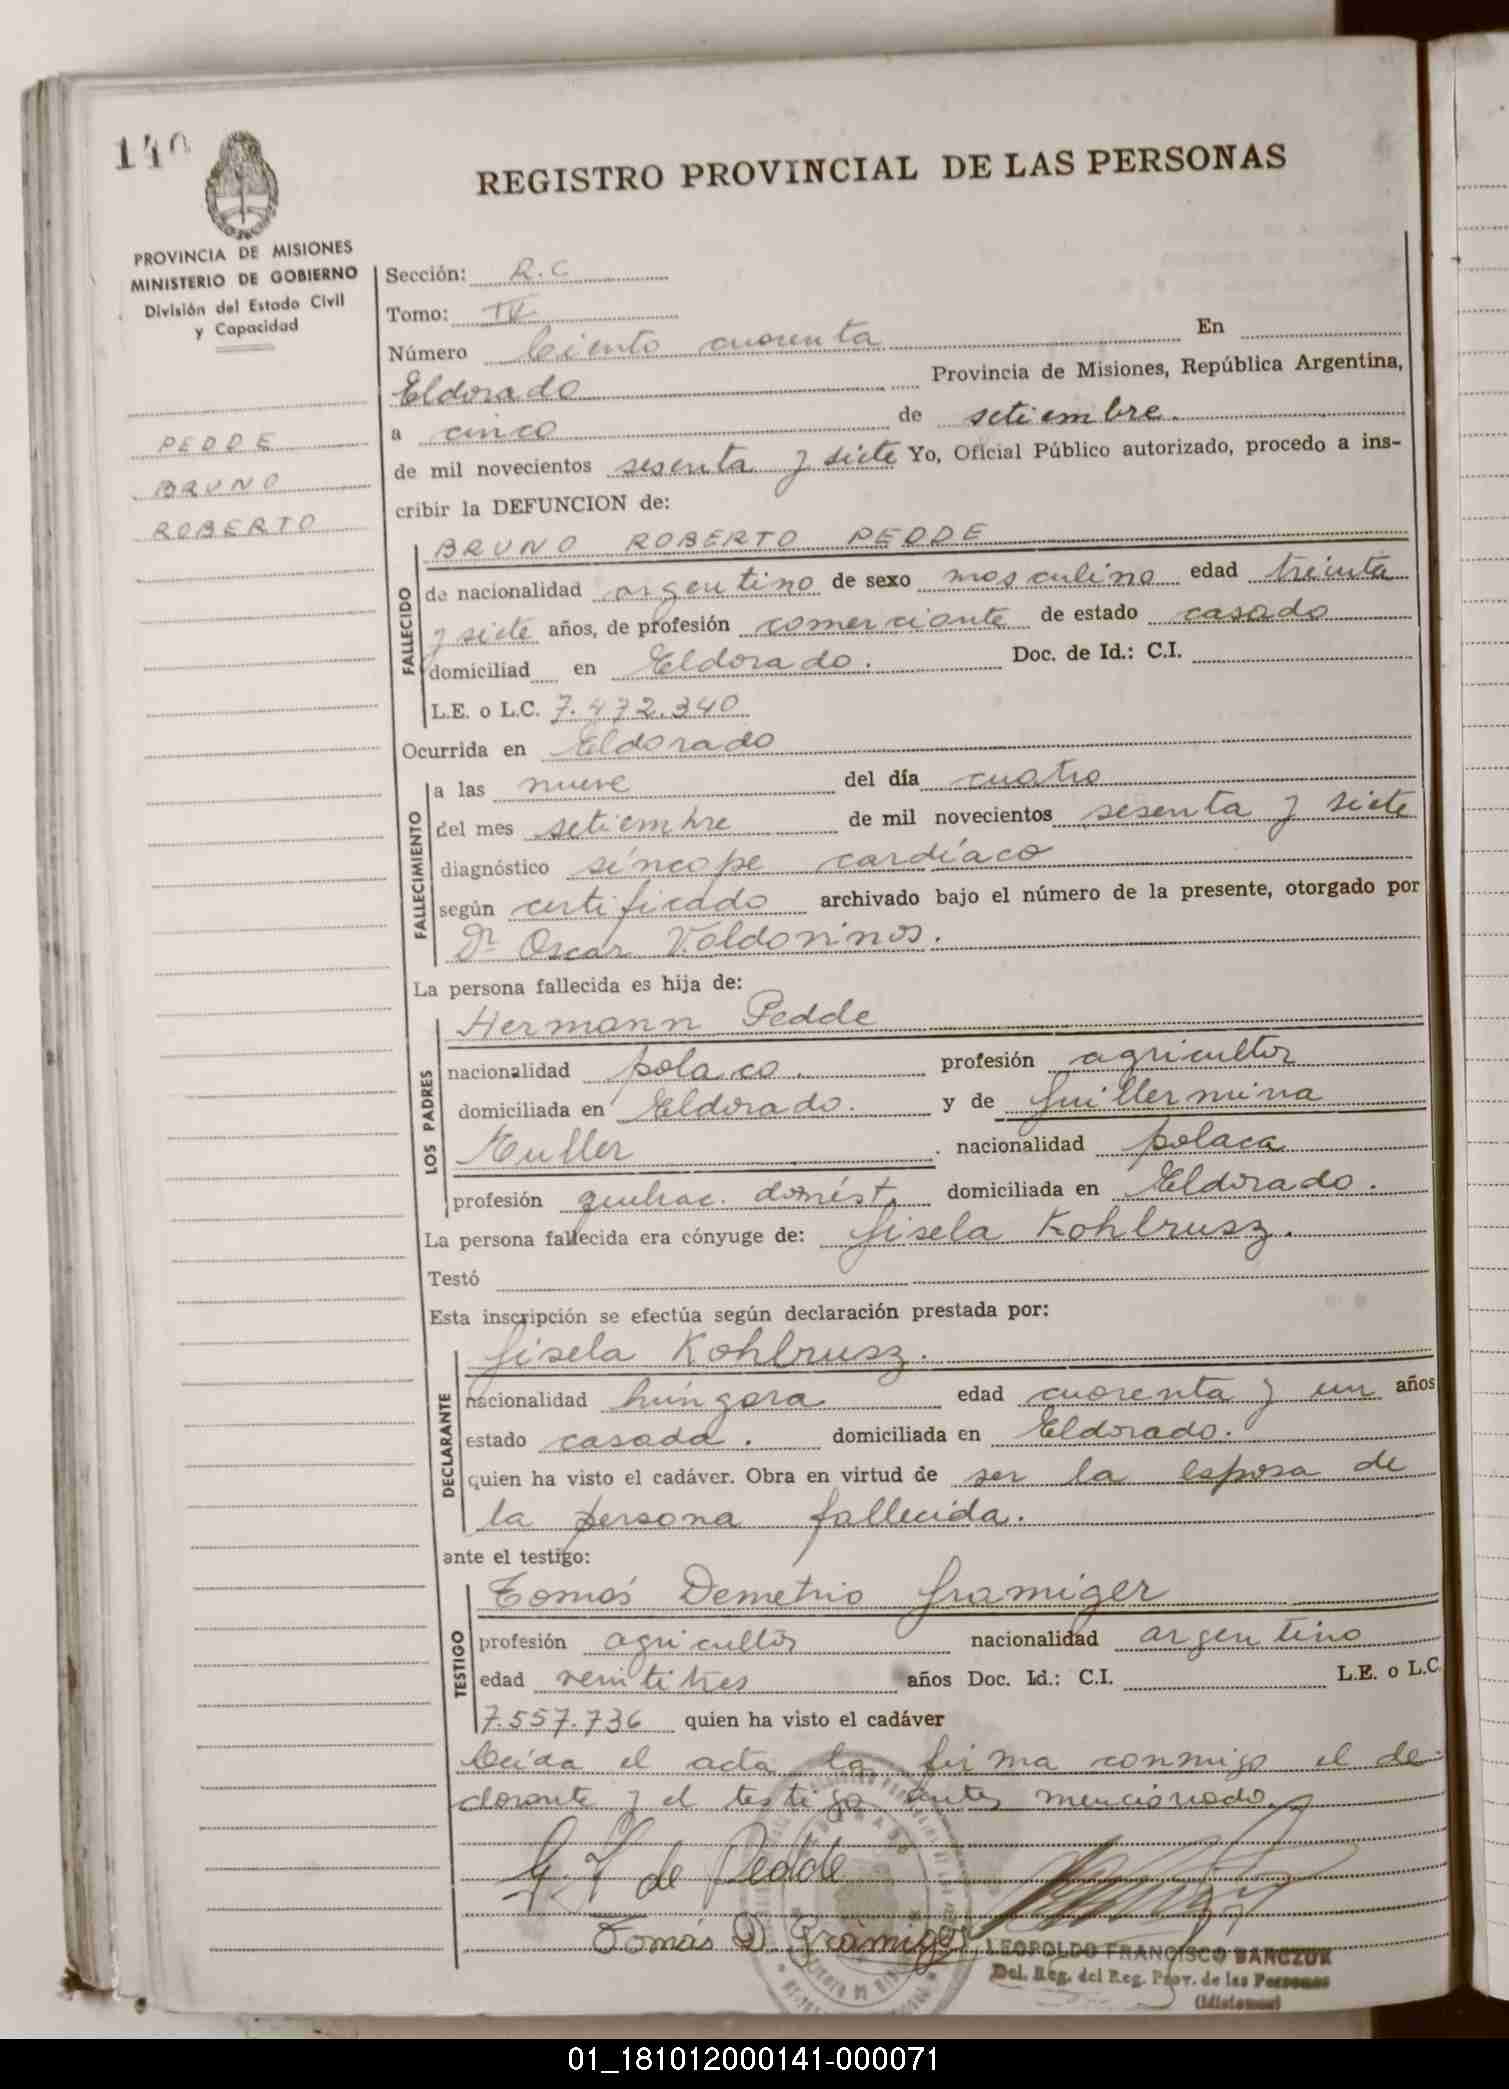 140
REGISTRO PROVINCIAL DE LAS PERSONAS
PROVINCIA DE MISIONES
MINISTERIO DE GOBIERNO
División del Estado Civil
y Capacidad
PEDDE
BRUNO
ROBERTO
Sección: R.C
Tomo: IV
Número Ciento cuarenta En
Eldorado Provincia de Misiones, República Argentina,
a cinco de setiembre.
de mil novecientos sesenta y siete Yo, Oficial Público autorizado, procedo a ins-
cribir la DEFUNCION de:
FALLECIDO
BRUNO ROBERTO PEDDE
de nacionalidad argentino de sexo masculino edad treinta
y siete años, de profesión comerciante de estado casado
domiciliad en Eldorado. Doc. de Id.: C.I.
L.E. o L.C. 7.472.340
Ocurrida en Eldorado
FALLECIMIENTO
a las nueve del día cuatro
del mes setiembre de mil novecientos sesenta y siete
diagnóstico síncope cardíaco
según certificado archivado bajo el número de la presente, otorgado por
Dr Oscar Valdovinos.
La persona fallecida es hija de:
LOS PADRES
Hermann Pedde
nacionalidad polaco. profesión agricultor
domiciliada en Eldorado. y de Guillermina
nacionalidad polaca
profesión quehac. domést. domiciliada en Eldorado.
La persona fallecida era cónyuge de: Gisela Kohlrusz.
Testó
Esta inscripción se efectúa según declaración prestada por:
DECLARANTE
Gisela Kohlrusz.
nacionalidad húngara edad cuarenta y un años
estado casada. domiciliada en Eldorado.
quien ha visto el cadáver. Obra en virtud de ser la esposa de
la persona fallecida.
ante el testigo:
TESTIGO
Tomás Demetrio Gramiger
profesión agricultor nacionalidad argentino
edad veintitres años Doc. Id.: C.I. L.E. o L.C.
7.557.736 quien ha visto el cadáver
Leída el acta la firma conmigo el de-
clarante y el testigo antes mencionado
G. K de Pedde
Tomás D. Gramiger
LEOPOLDO FRANCISCO BARCZUK
Del. Reg. del Reg. Prov. de las Personas
(Misiones)
01_181012000141-000071